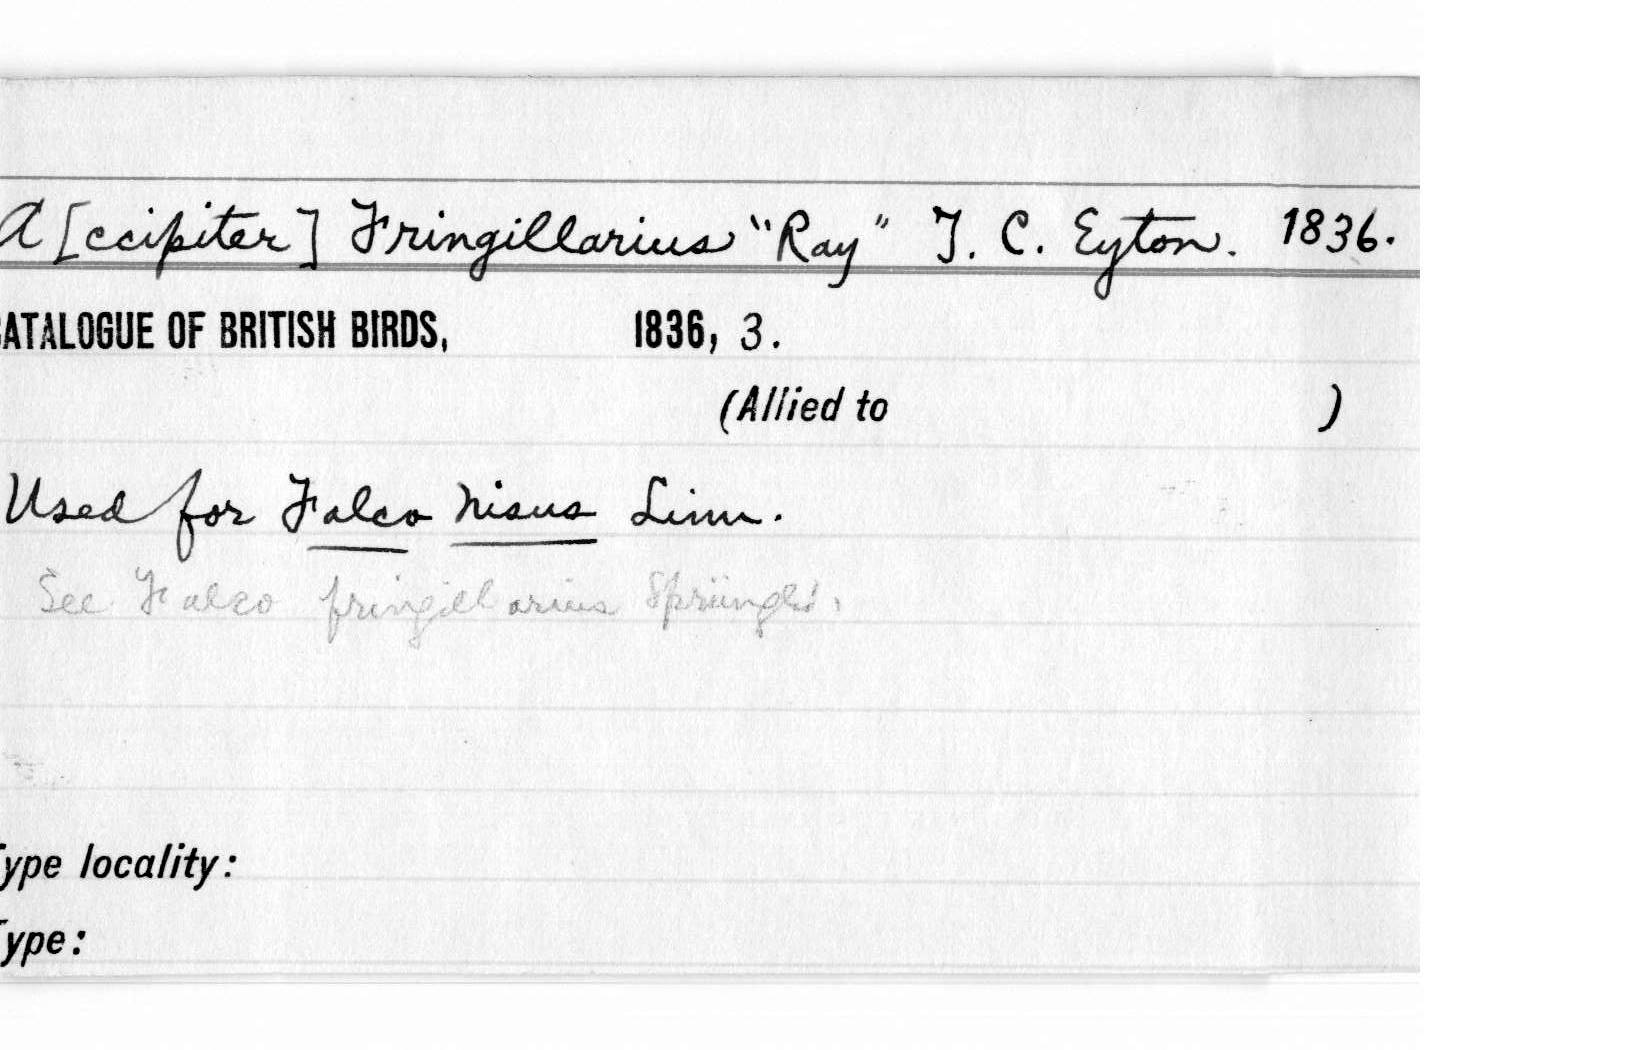 A[ccipiter] Fringillarius "Ray" T. C. Eyton. 1836.
CATALOGUE OF BRITISH BIRDS, 1836, 3.
(Allied to )
Used for Falco nisus Linn.
See Falco fringillarius Sprüngli.
Type locality:
Type: